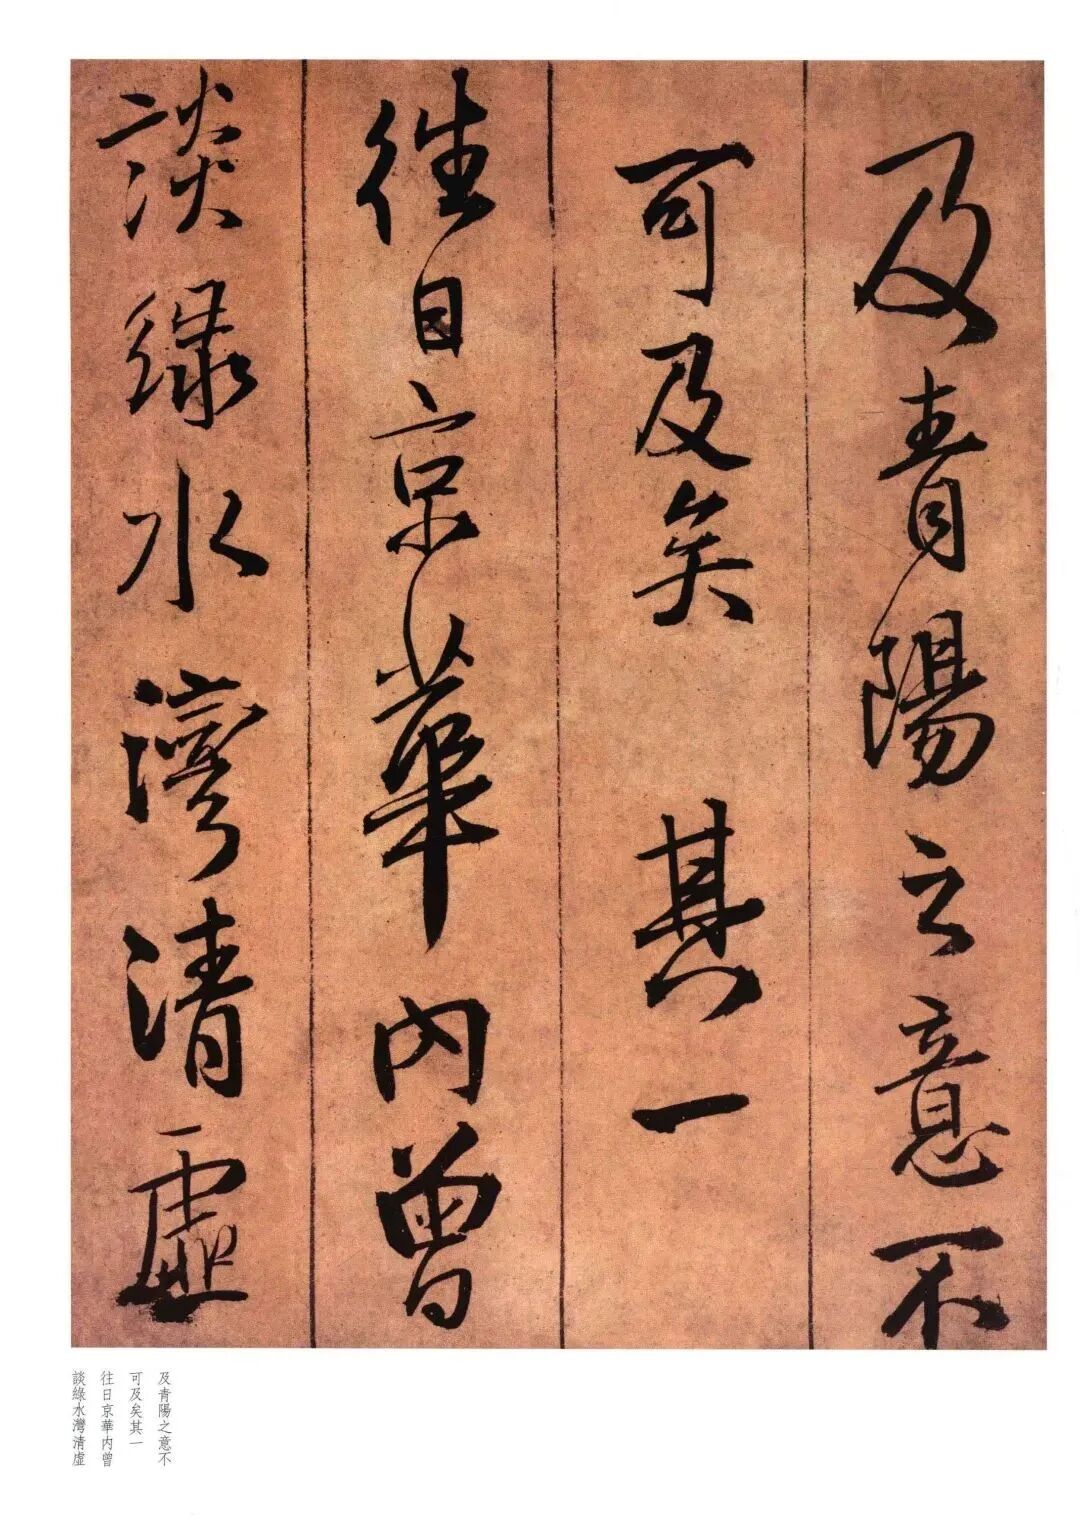 及青陽之意不
可及矣其一
往日京華内曾
談綠水灣清虛
及青陽之意不
可及矣其一
往日京華内曾
談綠水灣清虛